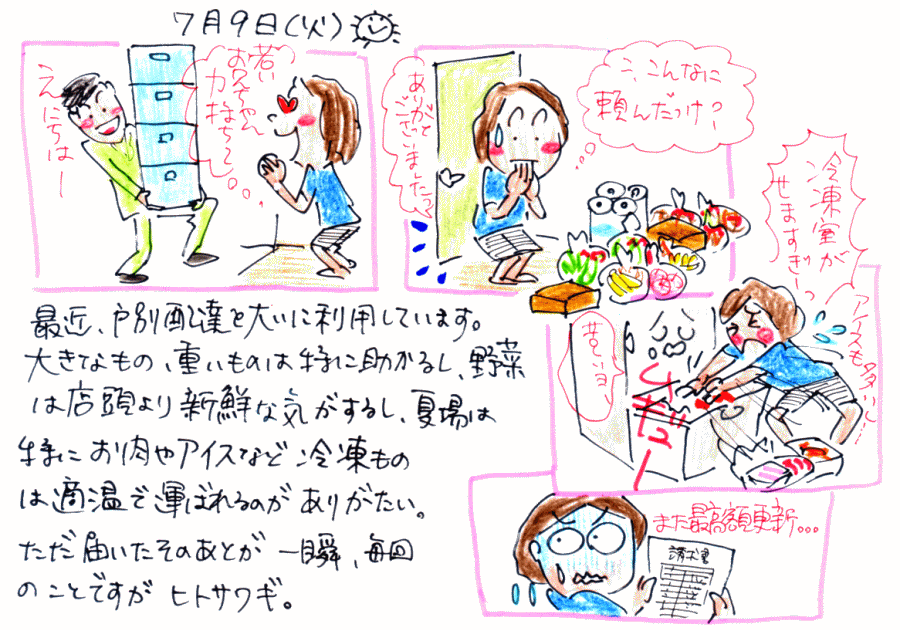 7月9日(火)
こんにちはー
若い
お兄ちゃん
力持ちって。。。
ありがと
ございましたっ
こ、こんなに
頼んだっけ?
冷凍室が
せますぎぃっ
アイスも多いし…
苦しいヨ
ムギュー
また最高額更新...
請求書
最近、戸別配達を大いに利用しています。
大きなもの、重いものは特に助かるし、野菜
は店頭より新鮮な気がするし、夏場は
特にお肉やアイスなど冷凍もの
は適温で運ばれるのがありがたい。
ただ届いたそのあとが一瞬、毎回
のことですがヒトサワギ。